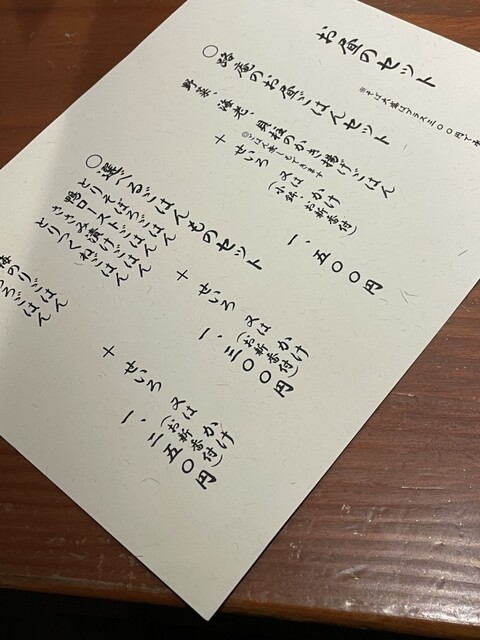 お昼のセット
※そば大盛はプラス三〇〇円で
〇路庵のお昼ごはんセット
野菜、海老、貝柱のかき揚げごはん
◎ごはん無しもできます
＋せいろ 又は かけ
（小鉢、お新香付）
一、五〇〇円
〇選べるごはんものセット
とりそぼろごはん
鴨ローストごはん
ささみ漬けごはん
とりつくねごはん
＋せいろ 又は かけ
（お新香付）
一、三〇〇円
海のりごはん
ろごはん
＋せいろ 又は かけ
（お新香付）
一、二五〇円